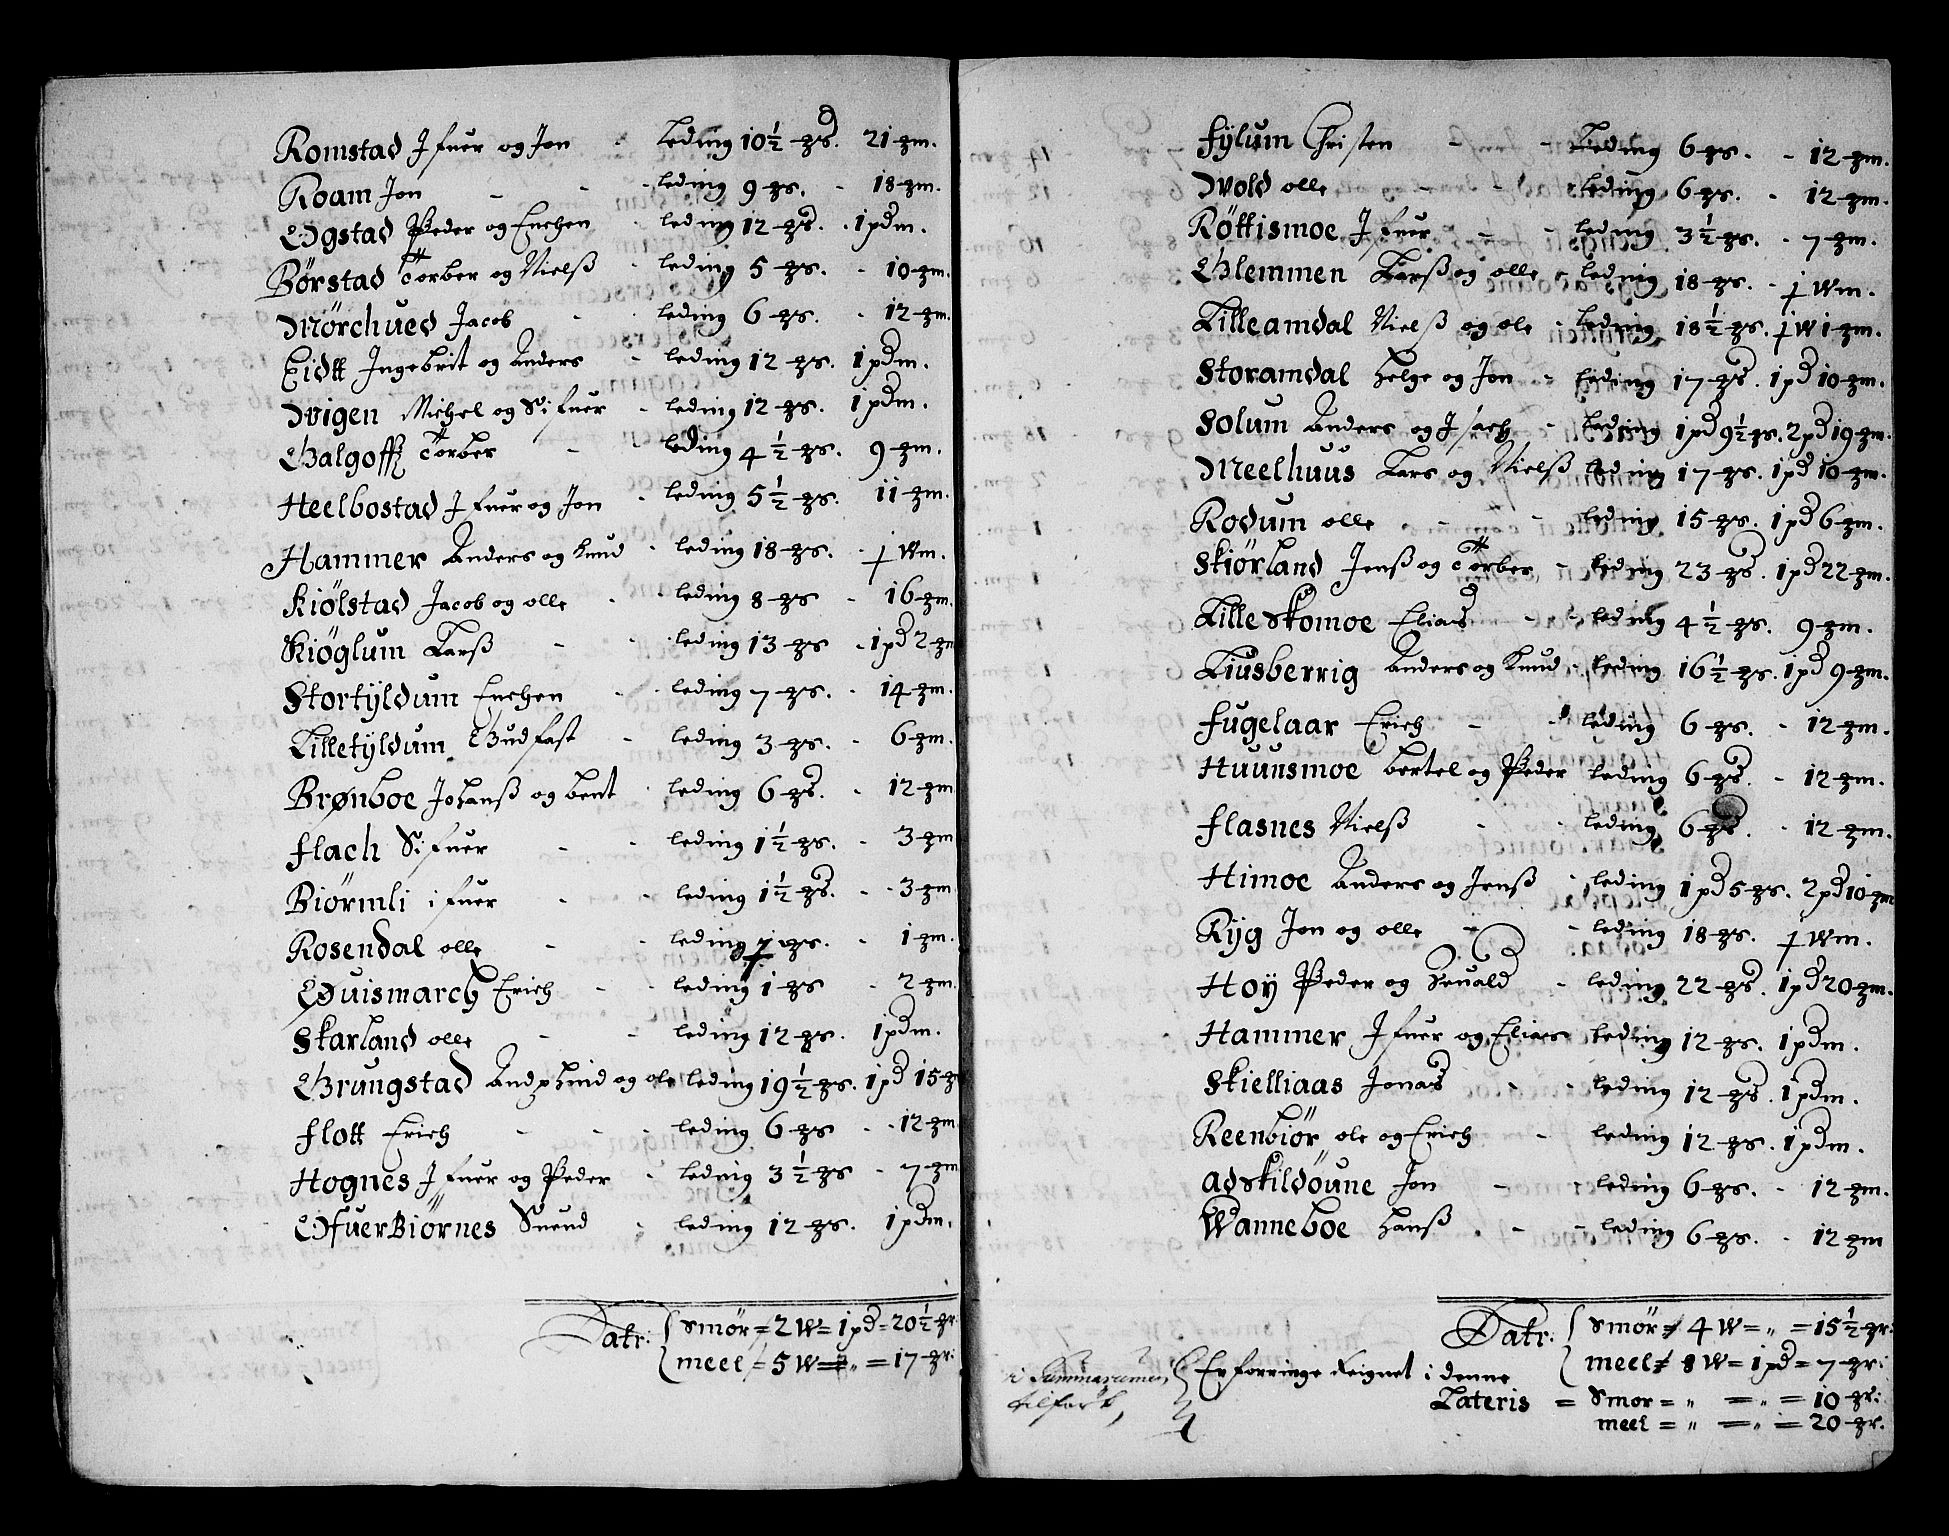 Romstad Ifuer og Jon - leding 10½ gs. 21 gm.
Roam Jon - - - leding 9 gs. - 18 gm.
Øgstad Peder og Enchen leding 12 gs. 1 pdm.
Börstad Torber og Nielß - leding 5 gs. - 10 gm.
Mörchued Jacob - leding 6 gs. - 12 gm.
Eidtt Ingebrit og Anders - leding 12 gs. 1 pdm.
Dvigen Michel og Sifuer - leding 12 gs. 1 pdm.
Galgoff Torber - leding 4½ gs. 9 gm.
Heelbostad Ifuer og Jon - leding 5½ gs. 11 gm.
Hammer Anders og Knud - leding 18 gs. - j Wm.
Kiölstad Jacob og olle - leding 8 gs - 16 gm.
Kiöglum Larß - - leding 13 gs - 1 pd 2 gm
Stortÿldum Enchen - leding 7 gs. - 14 gm.
Lilletÿldum Gudfast - leding 3 gs. - 6 gm.
Brønboe Johanß og bent - leding 6 gs. - 12 gm
Flach Sifuer - - leding 1½ gs. - 3 gm
Biörmli ifuer - - leding 1½ gs. - - 3 gm
Rosendal olle - - leding j gs. - 1 gm.
Quismarch Erich - - leding 1 gs - 2 gm.
Skarland olle - - leding 12 gs. 1 pdm.
Grungstad And Lind og ole leding 19½ gs. 1 pd 15 g
Flott Erich - - - leding 6 gs - - 12 gm
Hognes Ifuer og Peder - leding 3½ gs - 7 gm
Øfuer Biörnes Suend - leding 12 gs. 1 pdm.
Latr: Smör = 2 W = 1 pd = 20½ gr:
meel = 5 W = „ = 17 gr:
Fÿlum Christen - - Leding 6 gs. - 12 gm.
Dvold olle - - leding 6 gs. - 12 gm.
Röttismoe Ifuer - - leding 3½ gs. - 7 gm.
Glemmen Larß og olle - leding 18 gs. - j Wm.
Lilleamdal Nielß og ole - leding 18½ gs. j W 1 gm.
Storamdal Helge og Jon - leding 17 gs. 1 pd 10 gm.
Solum Anders og Isach - leding 1 pd 9½ gs. 2 pd 19 gm.
Meelhuus Lars og Nielß leding 17 gs. 1 pd 10 gm.
Rodum olle - - leding 15 gs. 1 pd 6 gm.
Skiörland Jenß og Torber - leding 23 gs. 1 pd 22 gm.
Lille Skomoe Elias - - leding 4½ gs. 9 gm.
Liusberrig Anders og Knud - leding 16½ gs. 1 pd 9 gm.
Fugelaar Erich - - leding 6 gs. - 12 gm.
Huunsmoe bertel og Peder leding 6 gs. - 12 gm.
Flasnes Nielß - - leding 6 gs. - 12 gm.
Himoe Anders og Jenß - leding 1 pd 5 gs. 2 pd 10 gm
Rÿg Jon og olle - - leding 18 gs. j Wm.
Hoy Peder og Seuald - leding 22 gs. 1 pd 20 gm.
Hammer Ifuer og Elias leding 12 gs. 1 pdm.
Skielliaas Jonas - - leding 12 gs. 1 pdm.
Reenbiör ole og Erich - leding 12 gs. 1 pdm.
adskildöune Jon - - leding 6 gs. - 12 gm.
Wanneboe Hanß - - leding 6 gs. - 12 gm
Latr: Smör = 4 W = „ = 15½ gr:
meel = 8 W = 1 pd = 7 gr:
Er forringe Reignet i denne
Lateris = Smor = „ = „ = 10 gr:
meel = „ = „ = 20 gr.